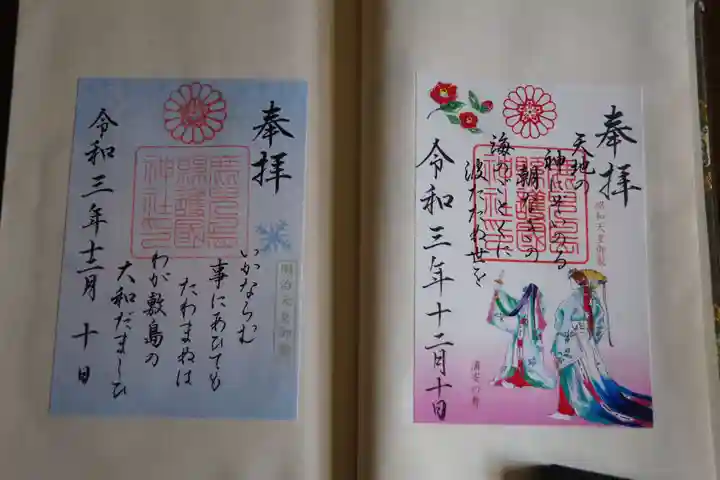 奉拝
天地の
神にぞいのる
朝なぎの
海のごとくに
波たたぬ世を
昭和天皇御製
令和三年十二月十日
浦安の舞
奉拝
廣島縣護國神社印
いかならむ
事にあひても
たわまぬは
わが敷島の
大和だましひ
明治天皇御製
令和三年十二月十日